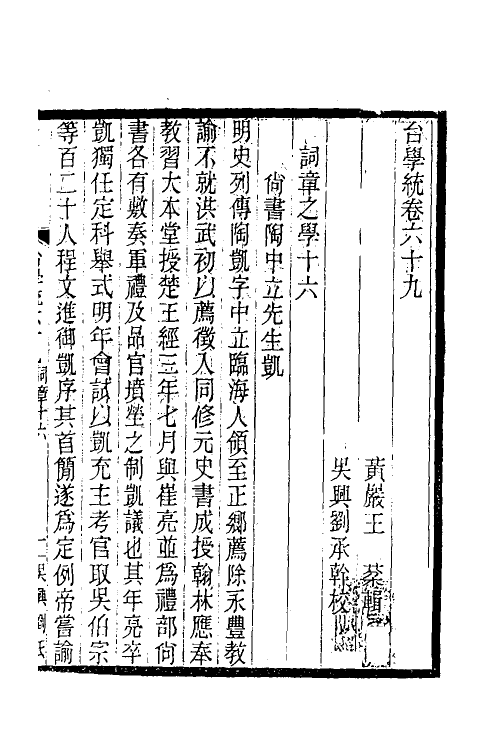 台學統卷六十九
黃巖王 棻輯
吳興劉承幹校
詞章之學十六
尙書陶中立先生凱
明史列傳陶凱字中立臨海人領至正鄉薦除永豐敎
諭不就洪武初以薦徵入同修元史書成授翰林應奉
敎習大本堂授楚王經三年七月與崔亮並爲禮部尙
書各有敷奏軍禮及品官墳塋之制凱議也其年亮卒
凱獨任定科舉式明年會試以凱充主考官取吳伯宗
等百二十人程文進御凱序其首簡遂爲定例帝嘗諭
詞章十六
一吳興劉氏